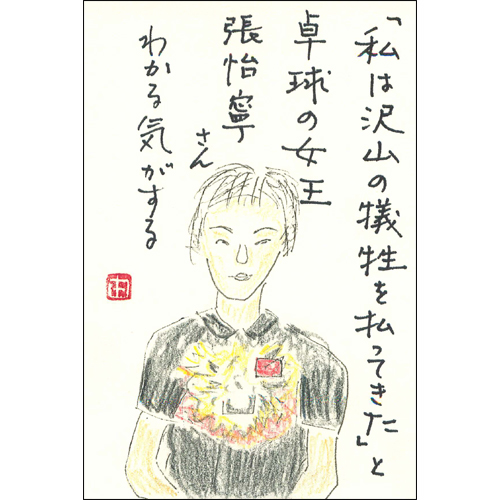 「私は沢山の犠牲を払ってきた」と
卓球の女王
張怡寧さん
わかる気がする